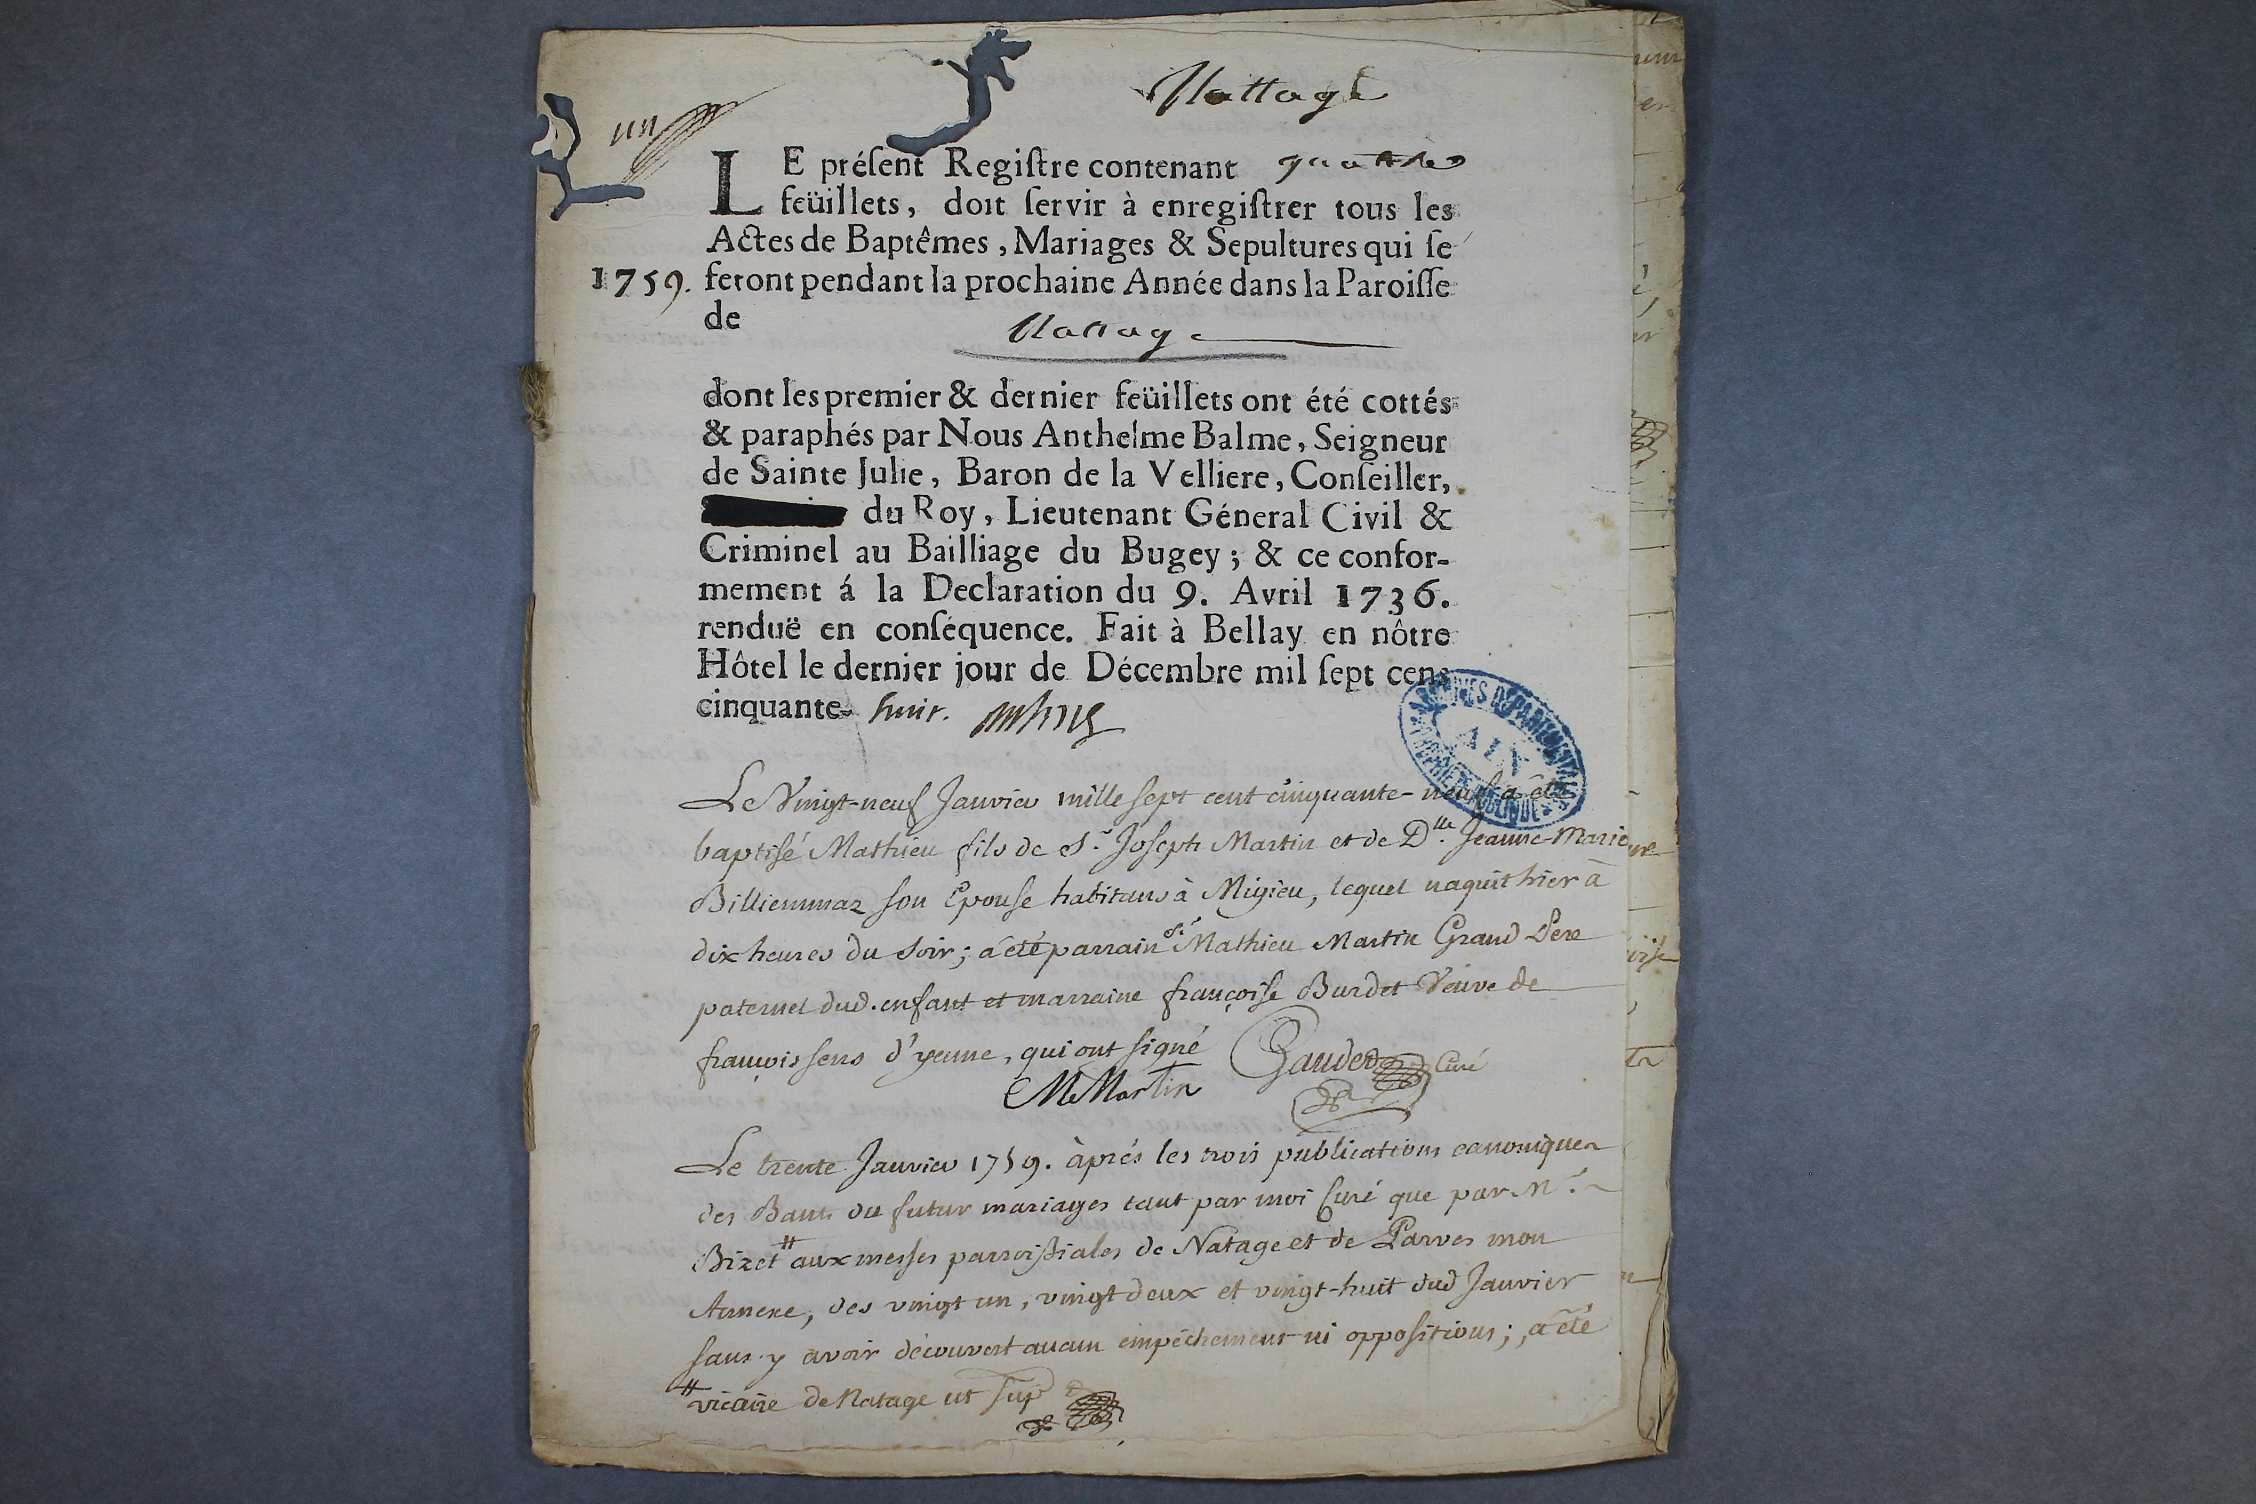 Nattage
un
LE préſent Regiſtre contenant quattre
feüillets, doit ſervir à enregiſtrer tous les
Actes de Baptêmes, Mariages & Sepultures qui ſe
1759. feront pendant la prochaine Année dans la Paroiſſe
de
Nattage
dont les premier & dernier feüillets ont été cottés
& paraphés par Nous Anthelme Balme, Seigneur
de Sainte Julie, Baron de la Velliere, Conſeiller,
du Roy, Lieutenant Géneral Civil &
Criminel au Bailliage du Bugey; & ce confor-
mement á la Declaration du 9. Avril 1736.
renduë en conſéquence. Fait à Bellay en nôtre
Hôtel le dernier jour de Décembre mil ſept cens
cinquante- huit.
ARCHIVES DÉPARTEMENTALES
AIN
PROPRIÉTÉ PUBLIQUE
Le Vingt-neuf Janvier mille sept cent cinquante-neuf a été
baptisé Mathieu fils de Sr. Joseph Martin et de Dlle. Jeanne-Marie
Billiemmaz son Epouse habitans à Migieu, lequel naquit hier à
dix heures du soir; a été parrain Sr. Mathieu Martin Grand Pere
paternel dud. enfant et marraine françoise Burdet Veuve de
françois sens d'yenne, qui ont signé Gaudet Curé
M Martin
Le trente Janvier 1759. àprés les trois publications canoniques
des Bans du futur mariages tant par moi Curé que par Mr.
Bizet # aux messes parroissiales de Natage et de Parves mon
Annexe, des vingt un, vingt deux et vingt-huit dud Janvier
sans y avoir découvert aucun empêchement ni oppositions; a été
# vicaire de Natage ut sup